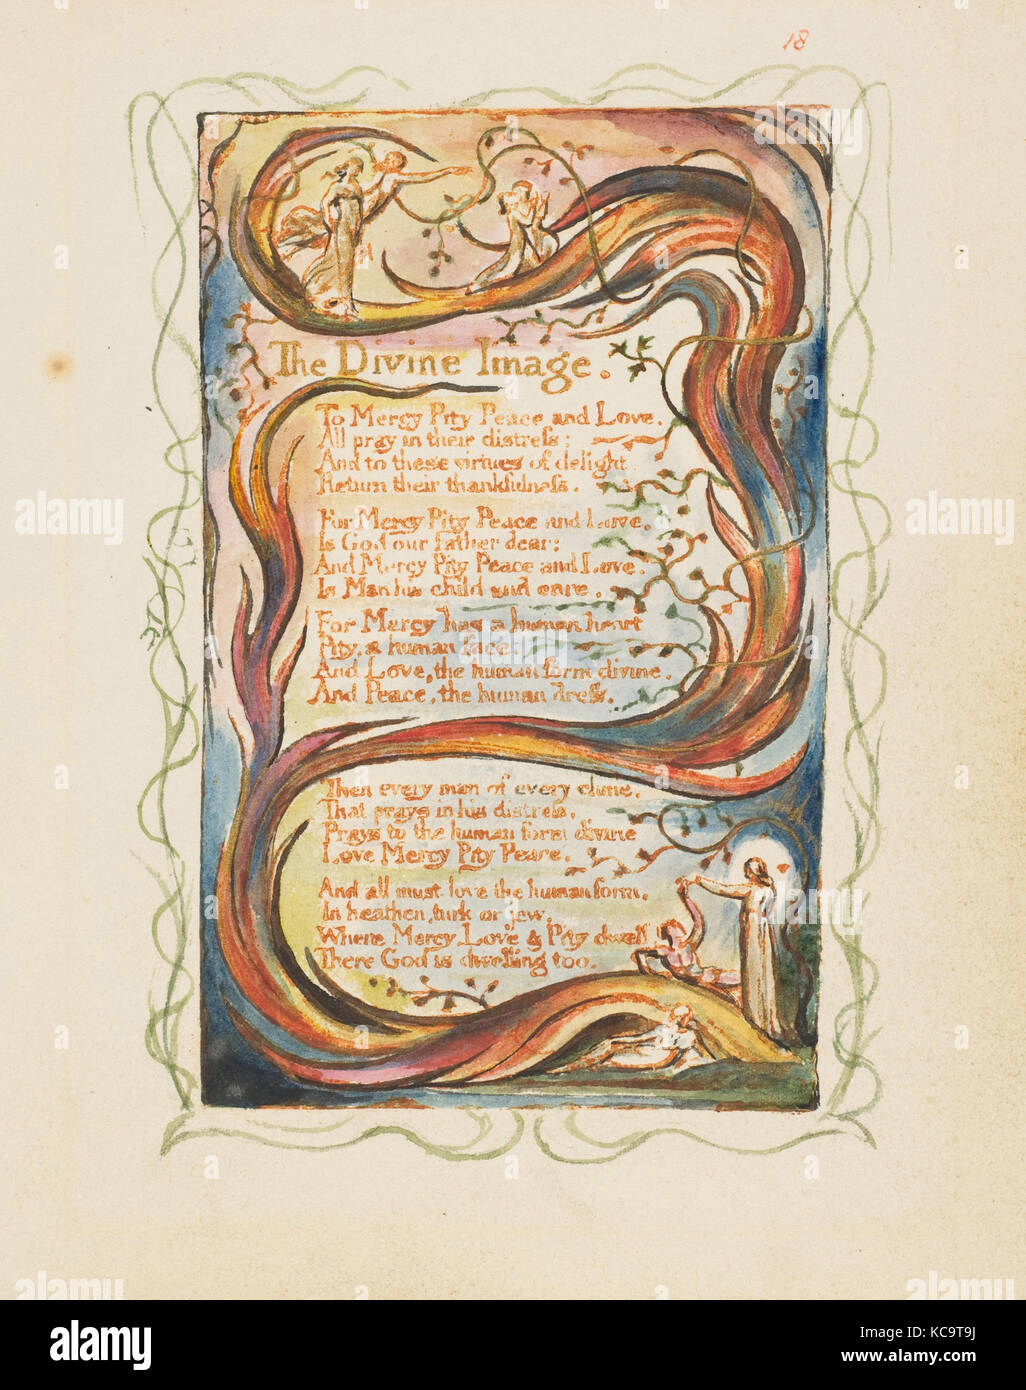 18
The Divine Image.
To Mercy Pity Peace and Love,
All pray in their distreſs:
And to these virtues of delight
Return their thankfulneſs.
For Mercy Pity Peace and Love,
Is God our father dear:
And Mercy Pity Peace and Love,
Is Man his child and care.
For Mercy has a human heart
Pity, a human face:
And Love, the human form divine,
And Peace, the human dreſs.
Then every man of every clime,
That prays in his distreſs,
Prays to the human form divine
Love Mercy Pity Peace.
And all must love the human form,
In heathen, turk or jew.
Where Mercy, Love & Pity dwell
There God is dwelling too.
alamy
Image ID: KC9T9J
www.alamy.com